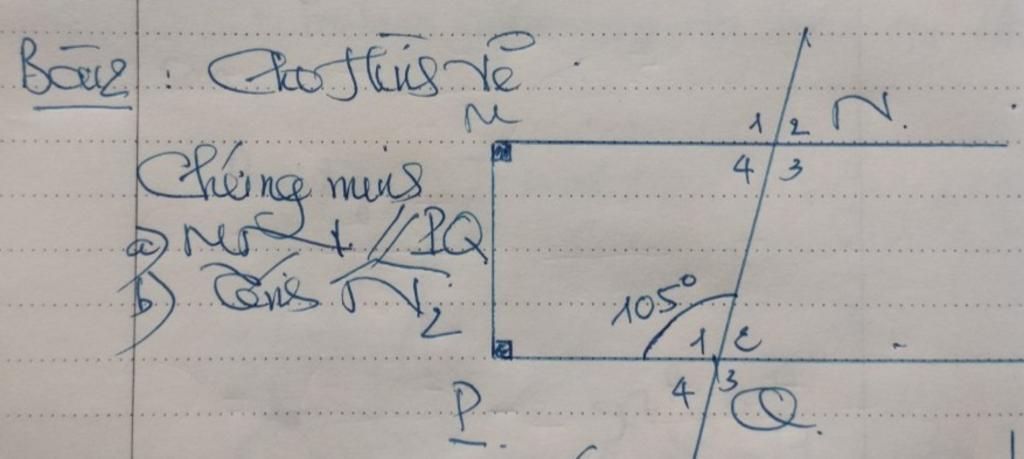 Bài 2 : Cho hình vẽ
M
1 2 N
4 3
Chứng minh
a) MN // PQ
b) Tính N2
105°
1 2
4 3
P
Q